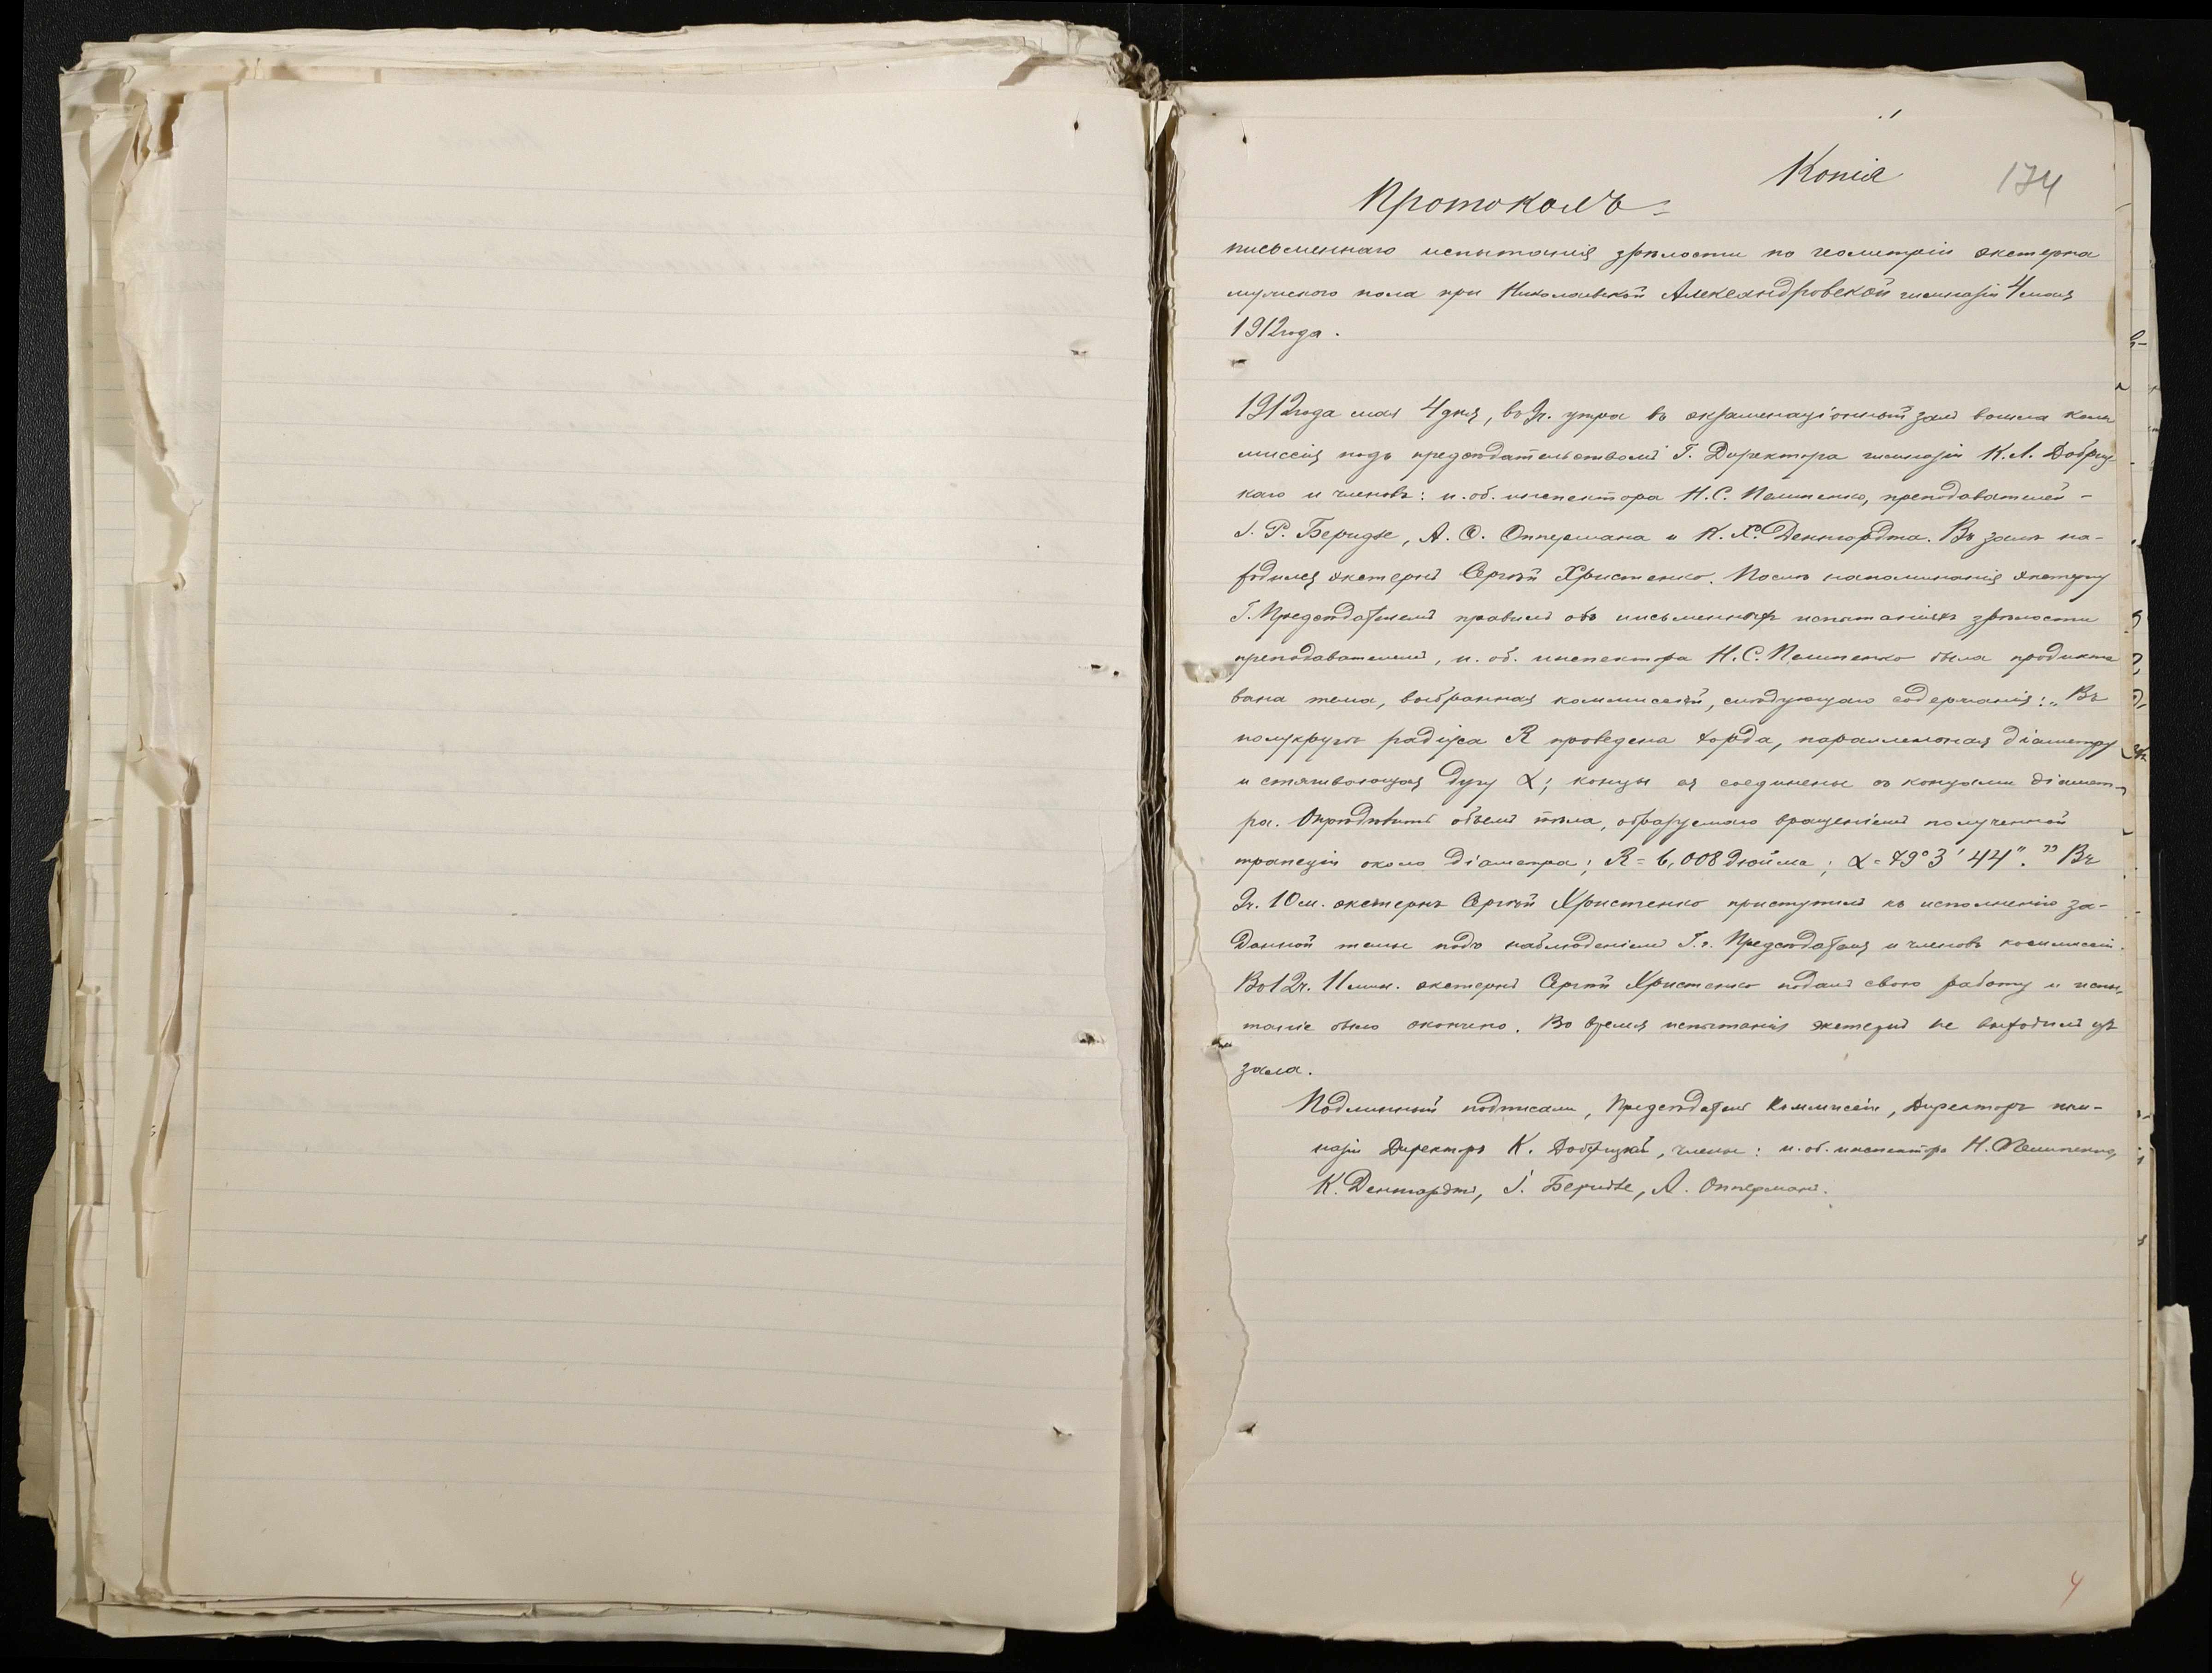 Копія
174
Протоколъ
письменнаго испытанія зрѣлости по геометріи экстерна
мужского пола при Николаевской Александровской гимназіи 4 мая
1912 года.
1912 года мая 4 дня, въ 9 ч. утра въ экзаменаціонный залъ вошла ком
миссія подъ предсѣдательствомъ Г. Директора гимназіи К. Л. Добриц-
каго и членовъ: и. об. инспектора Н. С. Пелипенко, преподавателей -
І. Р. Беридзе, А. О. Оппермана и К. Х. Денгардта. Въ залѣ на-
ходился экстернъ Сергѣй Христенко. Послѣ напоминанія экстерну
Г. Предсѣдателемъ правилъ объ письменныхъ испытаніяхъ зрѣлости
преподавателемъ, и. об. инспектора Н. С. Пелипенко была продикто
вана тема, выбранная коммиссіей, слѣдующаго содержанія: „Въ
полукругѣ радіуса R проведена хорда, параллельная діаметру
и стягивающая дугу α; концы ея соединены съ концами діамет-
ра. Опредѣлить объемъ тѣла, образуемаго вращеніемъ полученной
трапеціи около діаметра; R = 6,008 дюйма; α = 79° 3′ 44″.” Въ
9 ч. 10 м. экстернъ Сергѣй Христенко приступилъ къ исполненію за-
данной темы подъ наблюденіемъ Г.г. Предсѣдателя и членовъ коммиссіи.
Въ 12 ч. 11 мин. экстернъ Сергѣй Христенко подалъ свою работу и испы-
таніе было окончено. Во время испытанія экстернъ не выходилъ изъ
зала.
Подлинный подписали, Предсѣдатель Коммиссіи, Директоръ гим-
назіи Директоръ К. Добрицкій, члены: и. об. инспектора Н. Пелипенко,
К. Денгардтъ, І. Беридзе, А. Опперманъ.